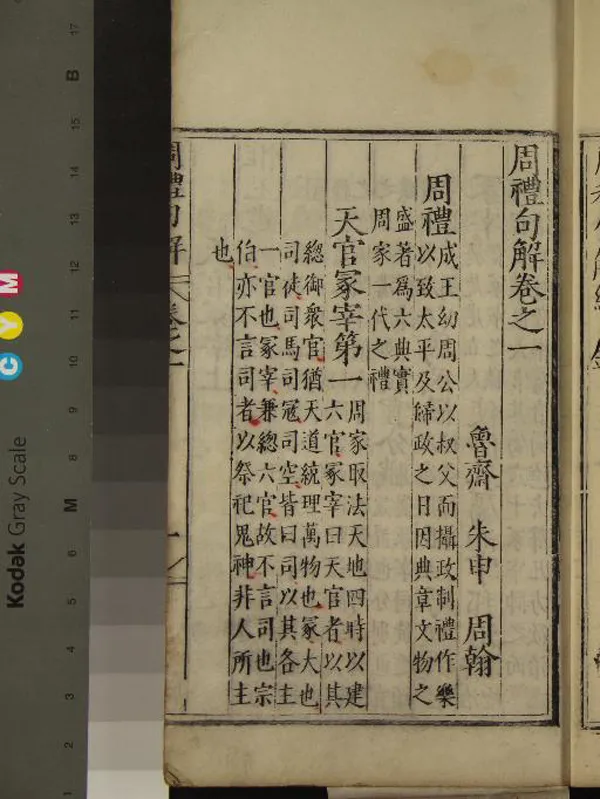 周禮句解卷之一
魯齋 朱申 周翰
周禮 成王幼周公以叔父而攝政制禮作樂
以致太平及歸政之日因典章文物之
盛著爲六典實
周家一代之禮
天官冢宰第一 周家取法天地四時以建
六官冢宰曰天官者以其
總御衆官猶天道統理萬物也冢大也
司徒司馬司冦司空皆曰司以其各主
一官也冢宰兼總六官故不言司也宗
伯亦不言司者以祭祀鬼神非人所主
也
周禮句解 天卷之一 一
Kodak Gray Scale
C Y M
B
M
17
15
14
13
12
11
10
9
8
7
6
5
4
3
2
1